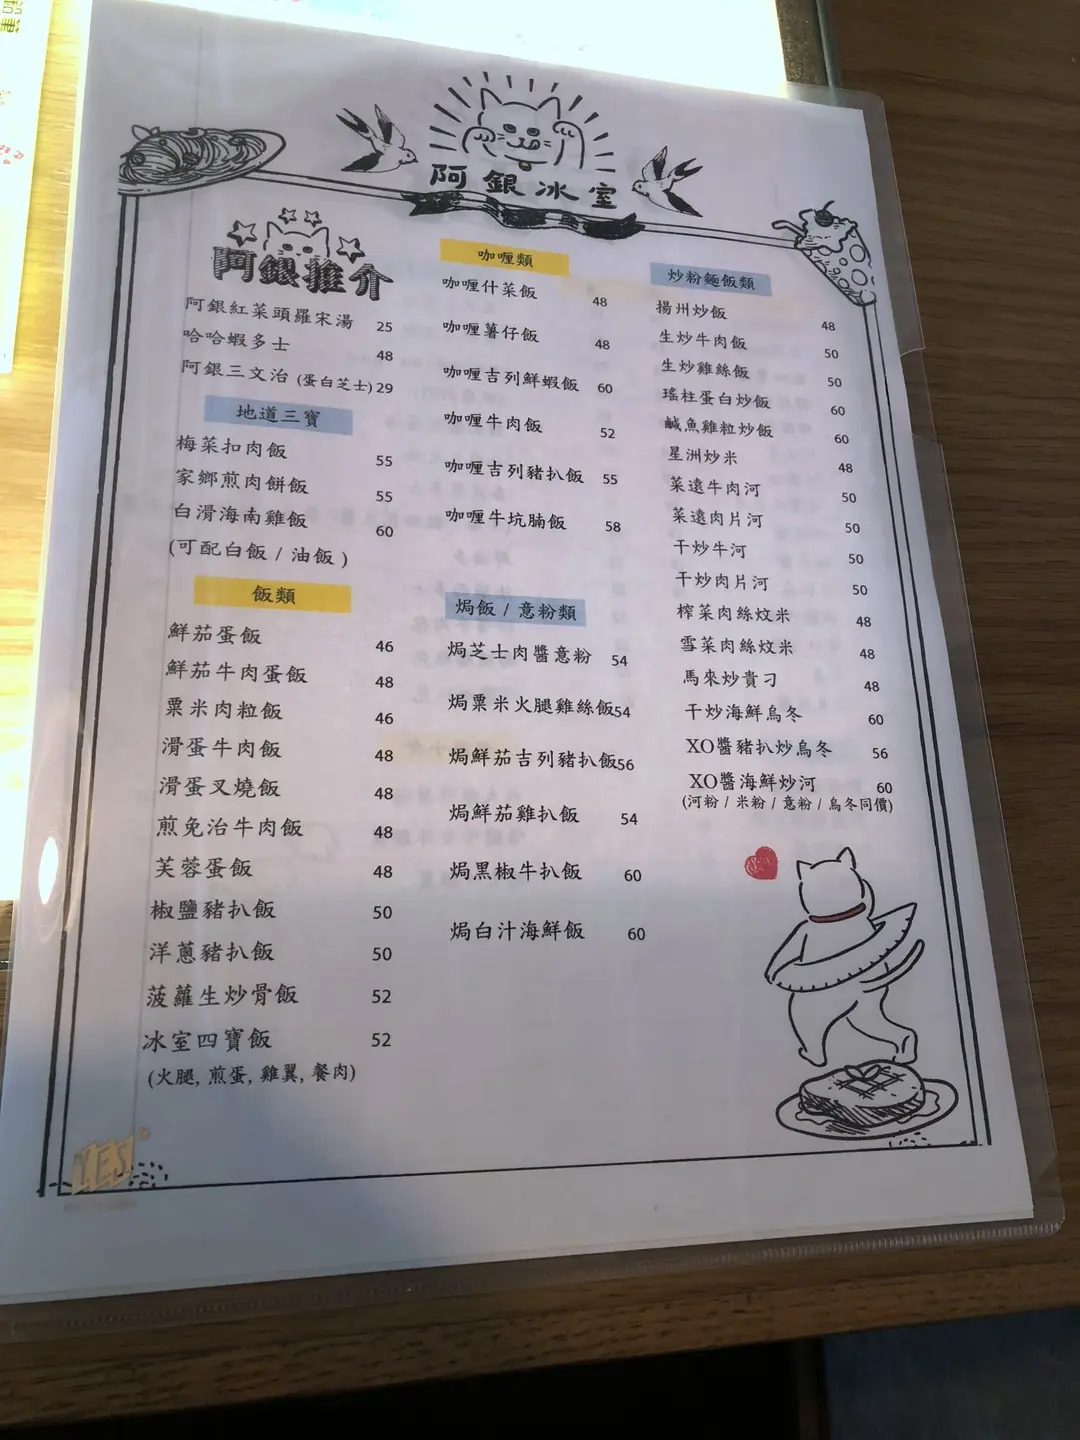 阿銀冰室
阿銀推介
阿銀紅菜頭羅宋湯 25
哈哈蝦多士 48
阿銀三文治 (蛋白芝士) 29
地道三寶
梅菜扣肉飯 55
家鄉煎肉餅飯 55
白滑海南雞飯 60
(可配白飯 / 油飯 )
飯類
鮮茄蛋飯 46
鮮茄牛肉蛋飯 48
粟米肉粒飯 46
滑蛋牛肉飯 48
滑蛋叉燒飯 48
煎免治牛肉飯 48
芙蓉蛋飯 48
椒鹽豬扒飯 50
洋蔥豬扒飯 50
菠蘿生炒骨飯 52
冰室四寶飯 52
(火腿, 煎蛋, 雞翼, 餐肉)
咖喱類
咖喱什菜飯 48
咖喱薯仔飯 48
咖喱吉列鮮蝦飯 60
咖喱牛肉飯 52
咖喱吉列豬扒飯 55
咖喱牛坑腩飯 58
焗飯 / 意粉類
焗芝士肉醬意粉 54
焗粟米火腿雞絲飯 54
焗鮮茄吉列豬扒飯 56
焗鮮茄雞扒飯 54
焗黑椒牛扒飯 60
焗白汁海鮮飯 60
炒粉麵飯類
揚州炒飯 48
生炒牛肉飯 50
生炒雞絲飯 50
瑤柱蛋白炒飯 60
鹹魚雞粒炒飯 60
星洲炒米 48
菜遠牛肉河 50
菜遠肉片河 50
干炒牛河 50
干炒肉片河 50
榨菜肉絲炆米 48
雪菜肉絲炆米 48
馬來炒貴刁 48
干炒海鮮烏冬 60
XO醬豬扒炒烏冬 56
XO醬海鮮炒河 60
(河粉 / 米粉 / 意粉 / 烏冬同價)
YES